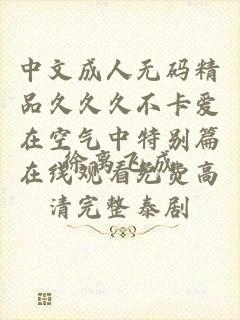 中文成人无码精
品久久久不卡爱
在空气中特别篇
在线观看免费高
清完整泰剧
徐离飞成